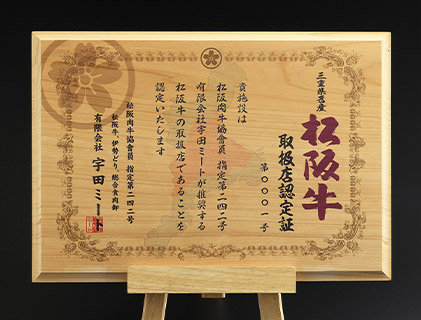 三重県畜産
松阪牛
取扱店認定証
第〇〇〇一号
貴施設は
松阪肉牛協會員 指定第二四二号
有限会社宇田ミートが推奨する
松阪牛の取扱店であることを
認定いたします
松阪肉牛協會員 指定第二四二号
松阪牛、伊勢どり、総合食肉卸
有限会社 宇田ミート